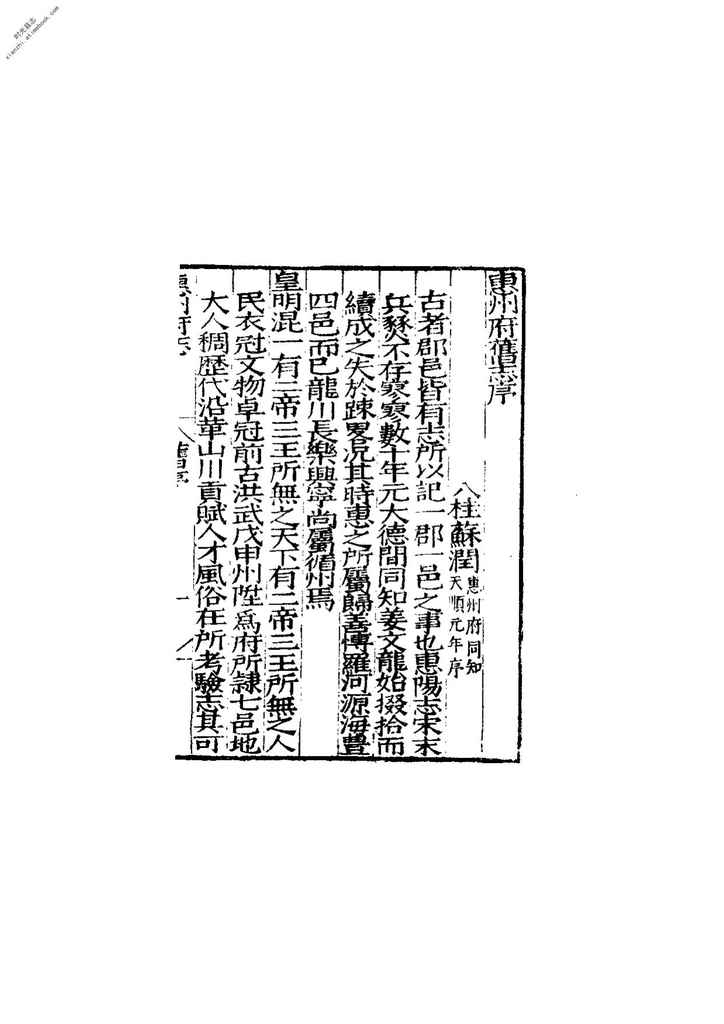 惠州府舊志序
八桂蘇潤惠州府同知
天順元年序
古者郡邑皆有志所以記一郡一邑之事也惠陽志宋末
兵燹不存寥寥數十年元大德間同知姜文龍始掇拾而
續成之失於踈畧况其時惠之所屬歸善博羅河源海豐
四邑而已龍川長樂興寧尚屬循州焉
皇明混一有二帝三王所無之天下有二帝三王所無之人
民衣冠文物卓冠前古洪武戊申州陞爲府所隷七邑地
大人稠歷代沿革山川貢賦人才風俗在所考驗志其可
惠州府志
舊序
一
时光县志
xianzhi.atimebook.com